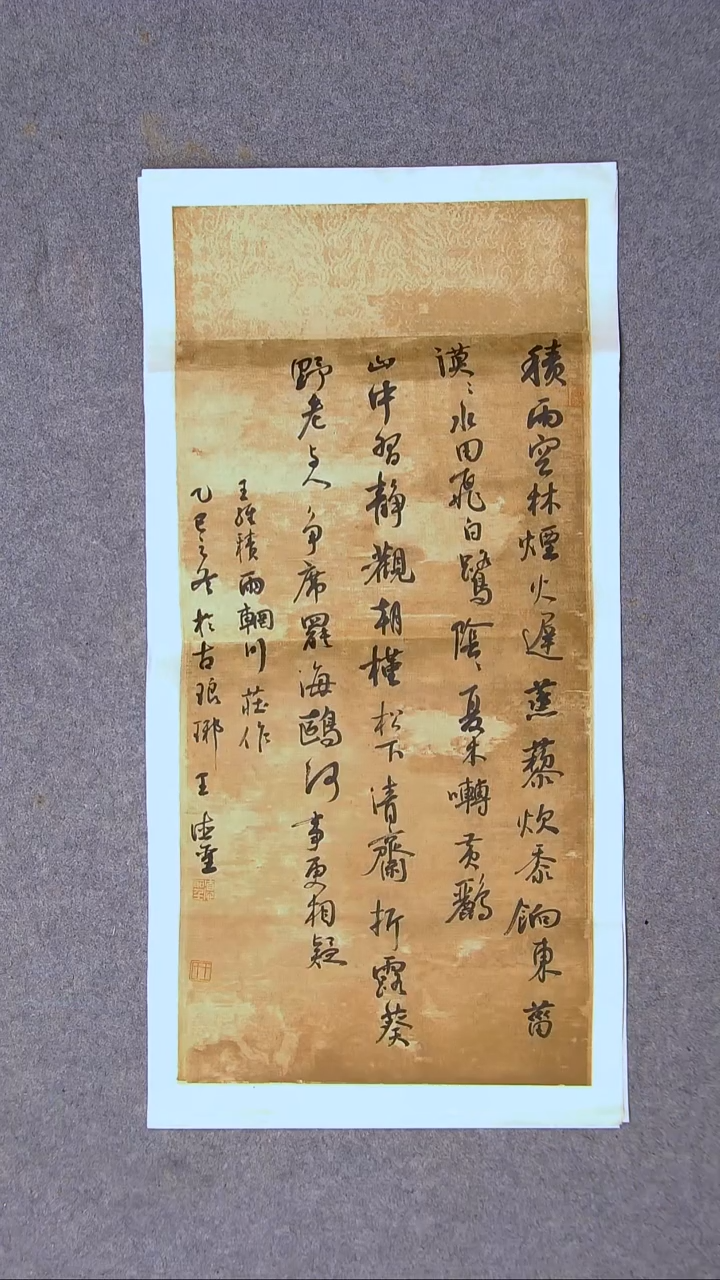 積雨空林煙火遲蒸藜炊黍餉東菑
漠〻水田飛白鷺陰〻夏木囀黃鸝
山中習靜觀朝槿松下清齋折露葵
野老與人爭席罷海鷗何事更相疑
王維積雨輞川莊作
乙巳之冬於古琅琊王